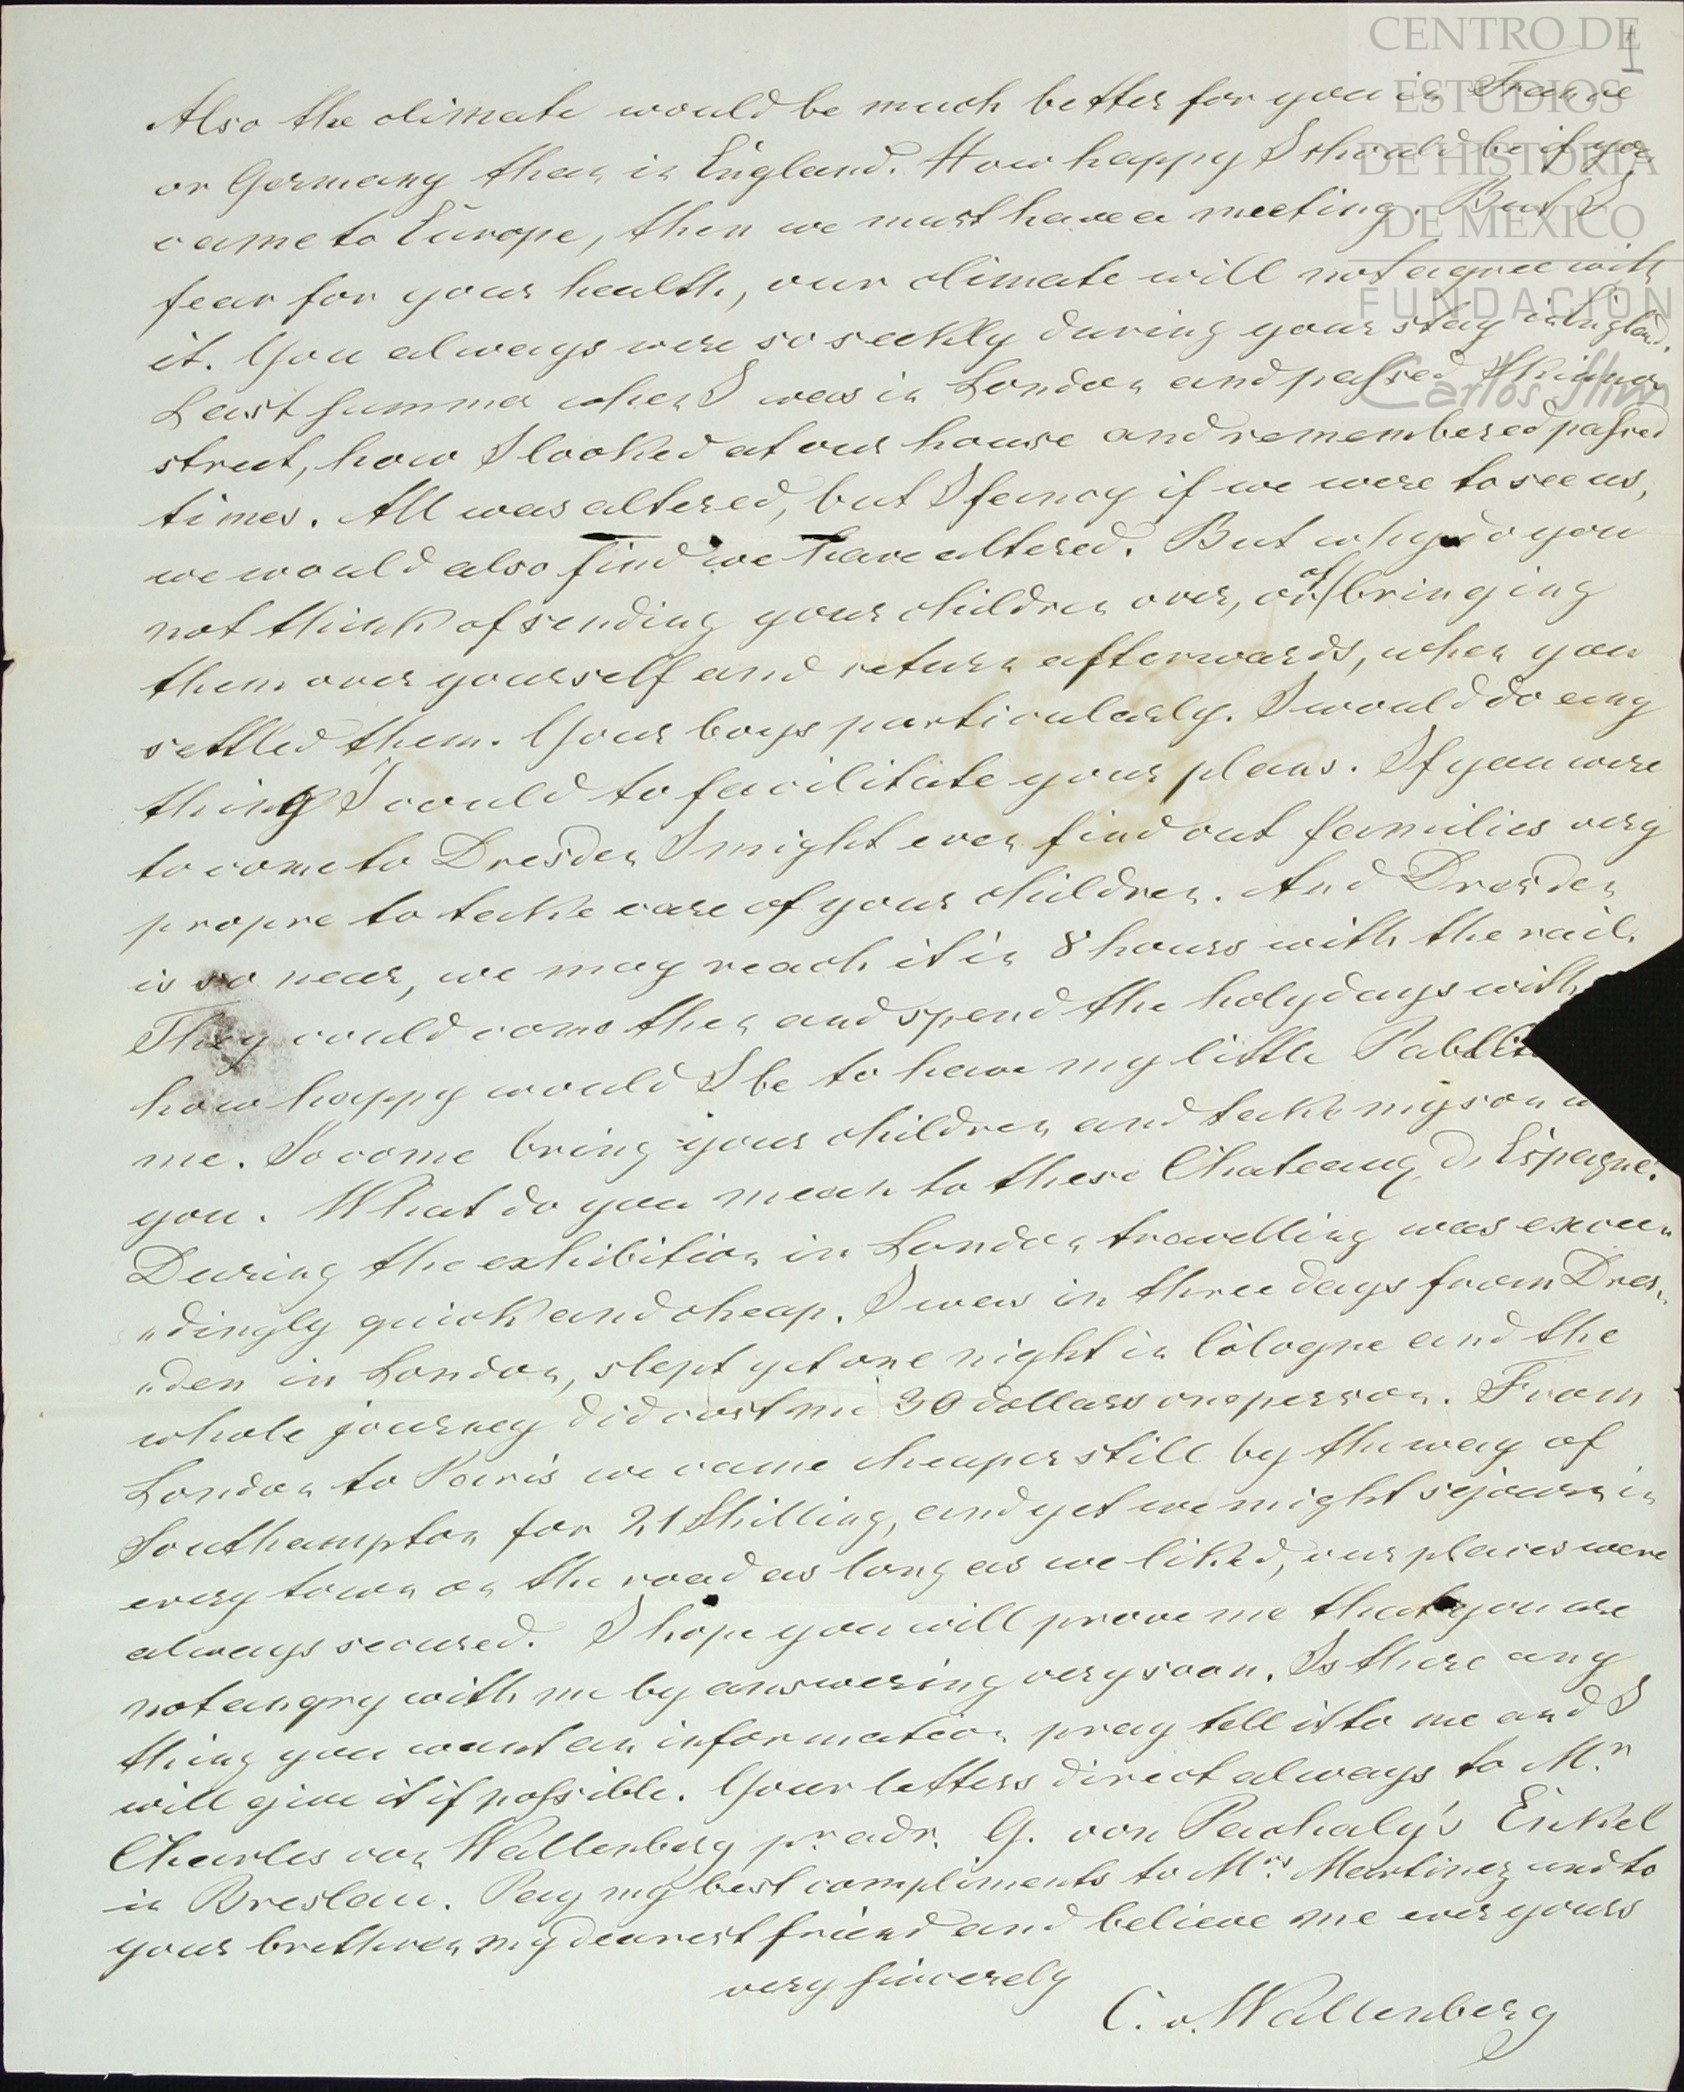 CENTRO DE
ESTUDIOS
DE HISTORIA
DE MEXICO
FUNDACIÓN
Carlos Slim
1
Also the climate would be much better for you in France
or Germany than in England. How happy I should be if you
came to Europe, then we must have a meeting. But I
fear for your health, our climate will not agree with
it. You always were so seekly during your stay in England.
Last summer when I was in London and passed Skinner
street, how I looked at our house and remembered passed
times. All was altered, but I fancy if we were to see us,
we would also find we have altered. But why do you
not think of sending your children over, or of bringing
them over yourself and return afterwards, when you
settled them. Your boys particularly. I would do any
thing I could to facilitate your plans. If you were
to come to Dresden I might even find out families very
propre to take care of your children. And Dresden
is so near, we may reach it in 8 hours with the rail.
They could come then and spend the holydays with
how happy would I be to have my little
me. So come bring your children and take my son
you. What do you mean to these Chateaux d'Espagne.
During the exhibition in London travelling was excee„
„dingly quick and cheap. I was in three days from Dres„
„den in London, slept yet one night in Cologne and the
whole journey did cost me 30 dollars one person. From
London to Paris we came cheaper still by the way of
Southampton for 21 Shilling, and yet we might sejourn in
every town on the road as long as we liked, our places were
always secured. I hope you will prove me that you are
not angry with me by answering very soon. Is there any
thing you want an information pray tell it to me and I
will give it if possible. Your letters direct always to Mr.
Charles von Wallenberg pr. adr. G. von Pachaly's Enkel
in Breslau. Pay my best compliments to Mrs. Martinez and to
your brethren my dearest friend and believe me ever yours
very sincerely
C. v. Wallenberg